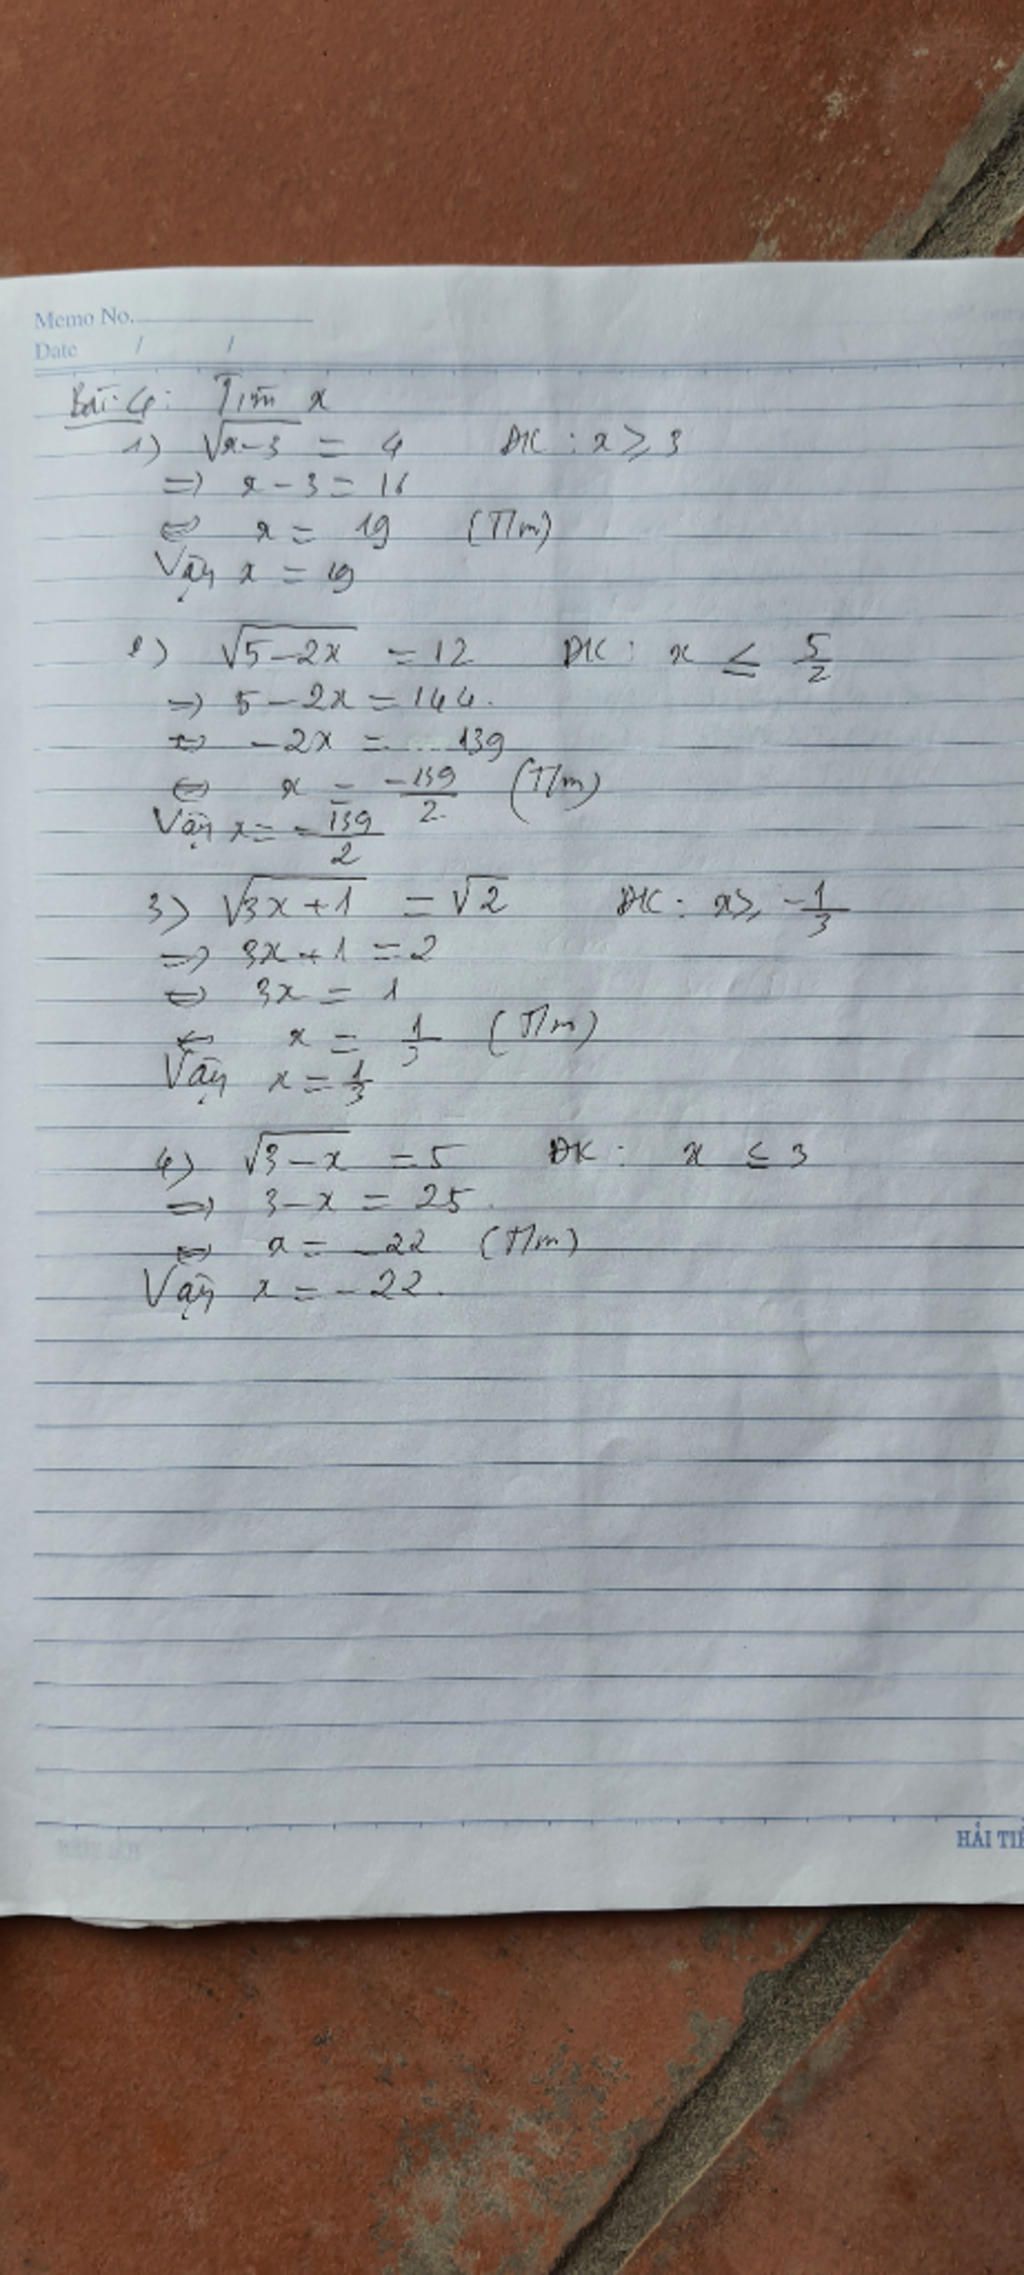 Memo No.
Date / /
Bài 4: Tìm x
1) √x-3 = 4 ĐK: x ≥ 3
=> x - 3 = 16
<=> x = 19 (T/m)
Vậy x = 19
2) √5-2x = 12 ĐK: x ≤ 5/2
=> 5 - 2x = 144.
<=> -2x = 139
<=> x = -139/2 (T/m)
Vậy x = -139/2
3) √3x+1 = √2 ĐK: x ≥ -1/3
=> 3x + 1 = 2
<=> 3x = 1
<= x = 1/3 (T/m)
Vậy x = 1/3
4) √3-x = 5 ĐK: x ≤ 3
=> 3 - x = 25.
<=> x = -22 (T/m)
Vậy x = -22.
HẢI TI